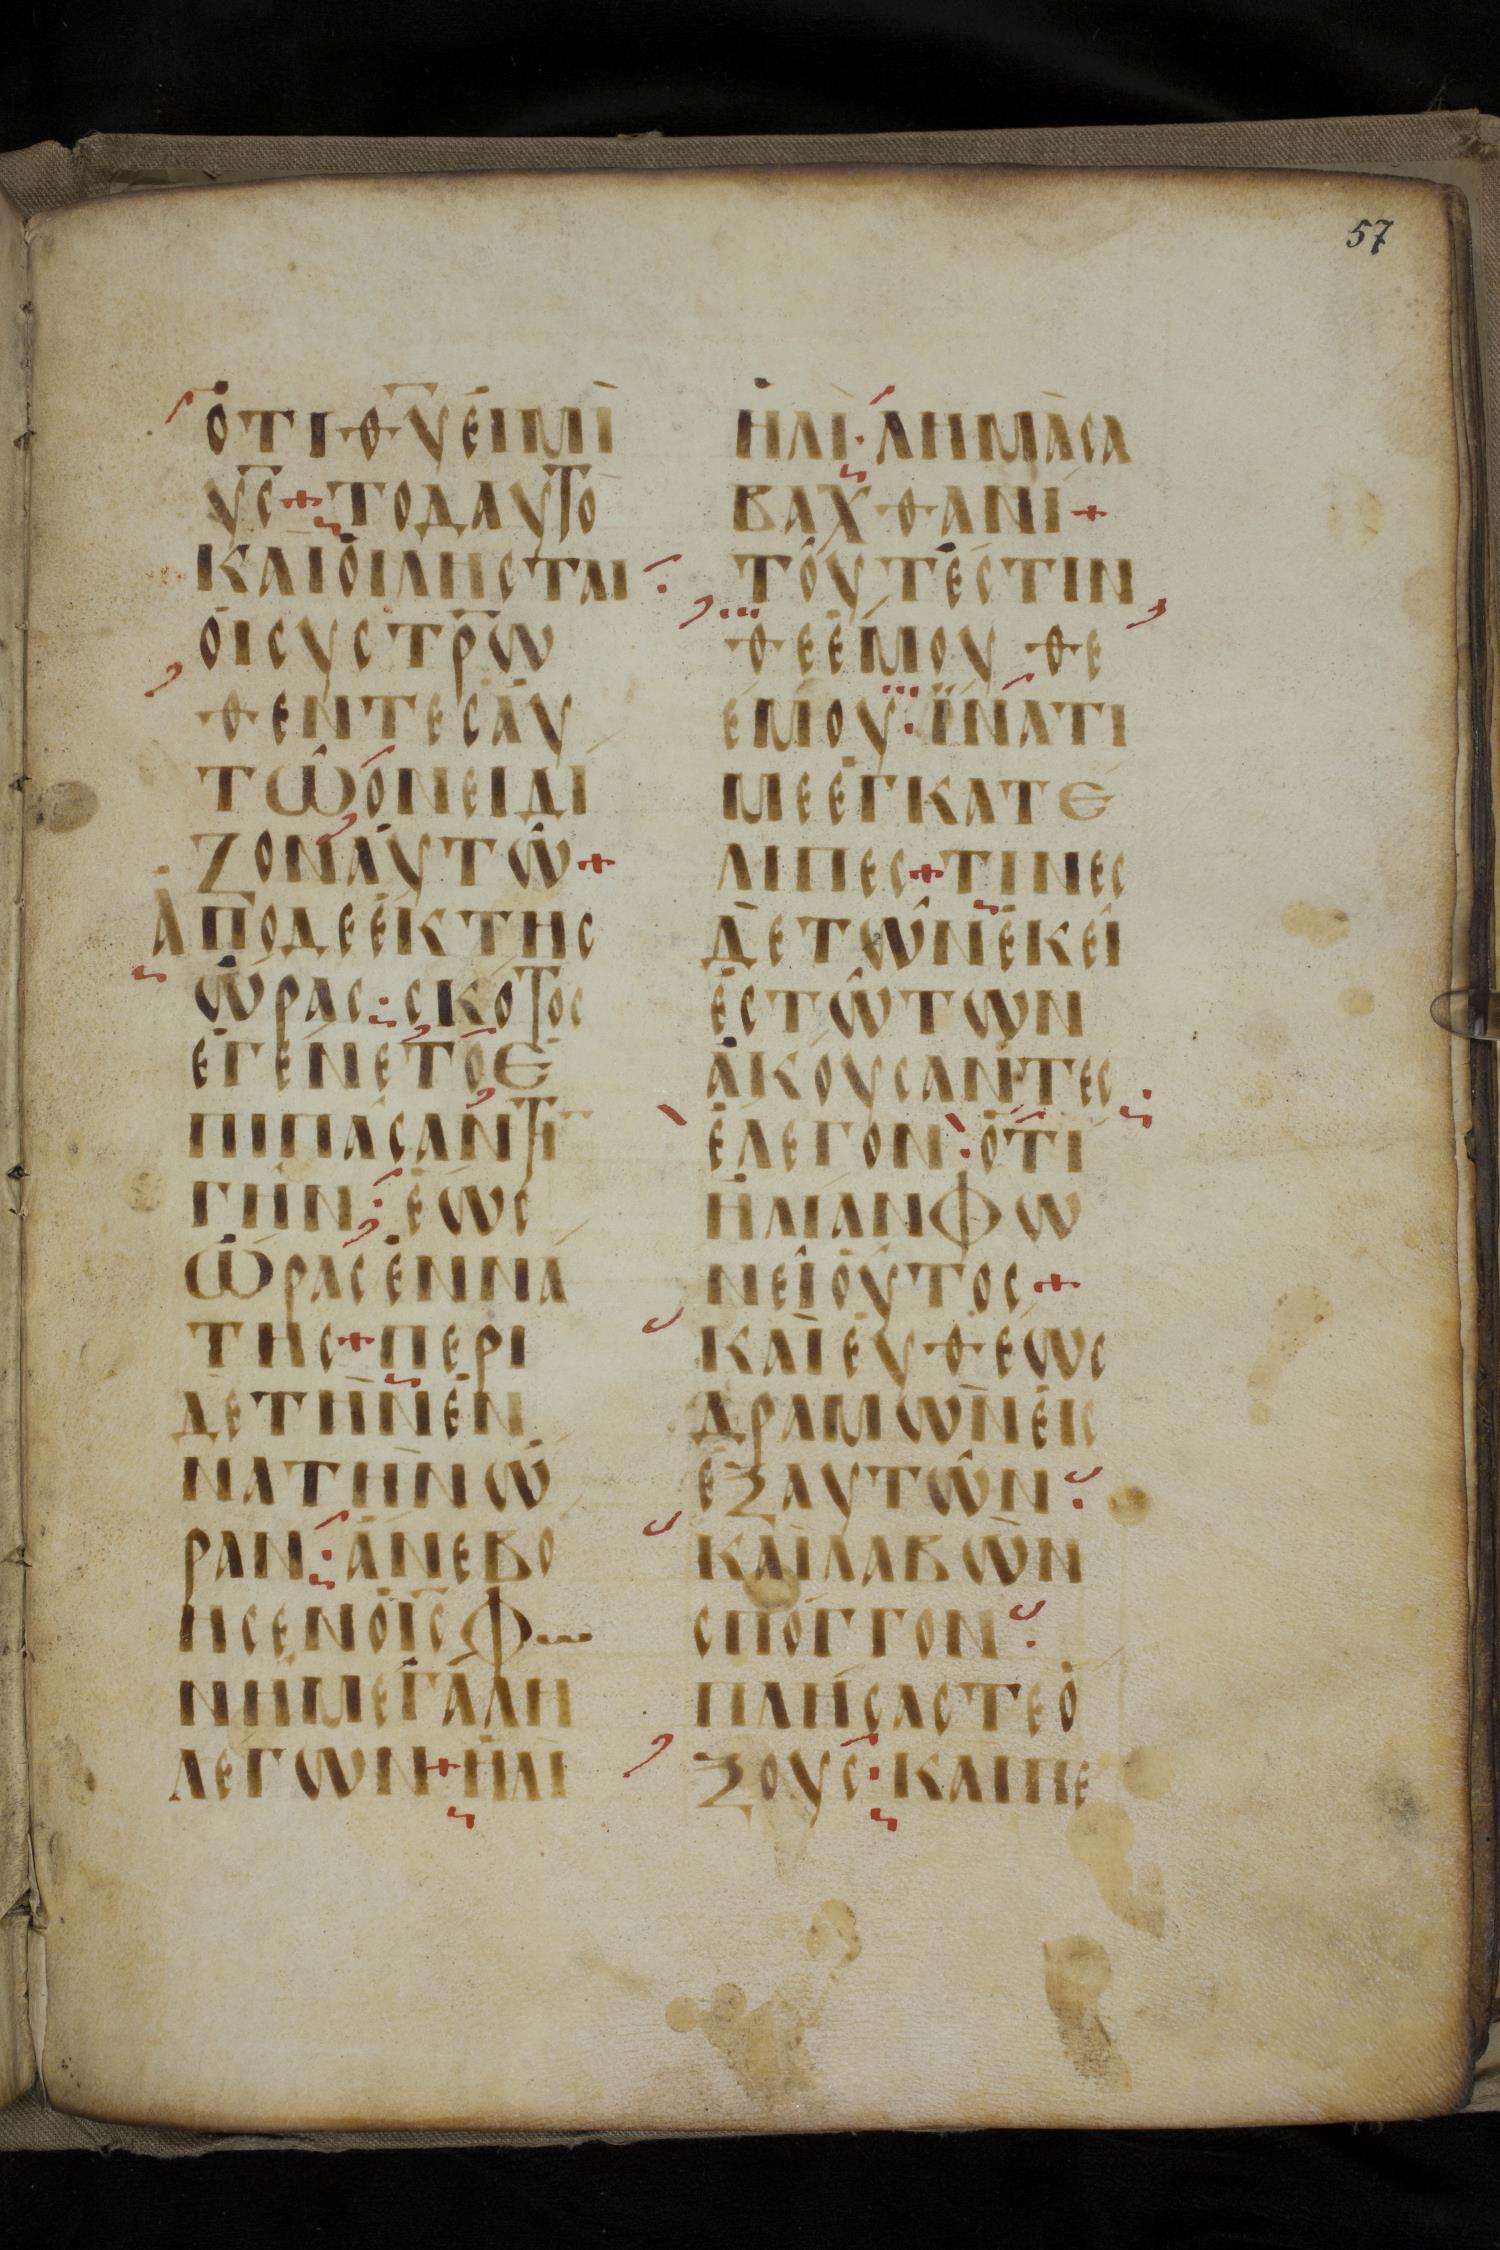 57
ὍΤΙ Θ̅Υ̅ ΕἰΜῚ
Υ̅Σ̅ + ΤΟ Δ ΑΥΤΟ
ΚΑΙ ΟἱΛΗΣΤΑΙ
ΟἱΣΥΣΤΡ̅Ω
ΘΕΝΤΕΣ ΑΥ
ΤΩ̂ ὨΝΕΙΔΙ
ΖΟΝ ΑΥΤΩ̂ +
ἈΠΟ ΔΕ ἙΚΤΗΣ
ὭΡΑΣ : ΣΚΟΤΟΣ
ἘΓΕΝΕΤΟ Ἐ
ΠΙ ΠΑΣΑΝ ΤῚ
ΓῊΝ : ἝΩΣ
ὭΡΑΣ ἘΝΝΑ
ΤΗΣ + ΠΕΡΙ
ΔΕ ΤῊΝ ἘΝ
ΝΑΤΗΝ Ὥ
ΡΑΝ : ἈΝΕΒΟ
ΗΣΕΝ Ὁ Ι̅Σ̅ ΦΩ
ΝΗ ΜΕΓΑΛΗ
ΛΕΓΩΝ + ἨΛῚ
ἨΛῚ · ΛΗΜᾺ ΣΑ
ΒΑΧΘΑΝΙ +
ΤΟΥΤΕΣΤΙΝ
ΘΕΕ ΜΟΥ ΘΕ
Ε ΜΟΥ : ἹΝΑΤΙ
ΜΕ ἘΓΚΑΤΕ
ΛΙΠΕΣ + ΤΙΝΕΣ
ΔΕ ΤΩ̂Ν ἘΚΕΙ
ἙΣΤΩ̂ΤΩΝ
ἈΚΟΥΣΑΝΤΕΣ :
ἜΛΕΓΟΝ : ὍΤΙ
ἩΛΙΑΝ ΦΩ
ΝΕΙ ΟΥΤΟΣ +
ΚΑΙ ΕΥΘΕΩΣ
ΔΡΑΜΩΝ ΕἿΣ
ἘΞ ΑΥΤΩ̂Ν :
ΚΑῚ ΛΑΒῺΝ
ΣΠΟΓΓΟΝ :
ΠΛΗΣΑΣ ΤΕ Ὀ
ΞΟΥΣ : ΚΑΙ ΠΕ